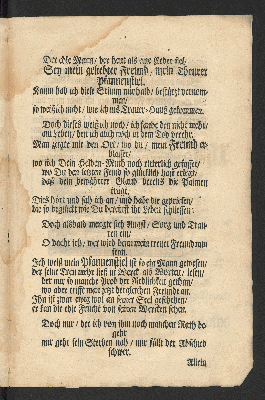 Der edle Mann / der hertz als ens Leder fiel,
Sey mein geliebter Freund, mein Theurer
Pfannenstiel.
Kaum hab ich diese Stimm nur halb / bestürtzt vernom-
men /
so weiß ich nicht / wie ich ins Trauer-Hauß gekommen.
Doch dieses weiß ich noch / ich fande den nicht mehr
am Leben / den ich auch noch in dem Tod verehr.
Man zeigte mir den Ort / wo du / mein Freund er-
blasset /
wo sich Dein Helden-Muth noch ritterlich gefasset /
wo Du den letzten Feind so glücklich hast erlegt /
daß dein bewährter Glaub bereits die Palmen
trägt.
Dies hört und sah ich an / und habe die gepriesen /
die so beglückt wie Du bereits ihr Leben schliessen:
Doch alsbald mengte sich Angst / Sorg und Trau-
ren ein /
O dacht ich / wer wird dann mein treuer Freund nun
seyn.
Ich weiß mein Pfannenstiel ist so ein Mann gewesen /
der seine Treu mehr ließ in Werck als Worten / lesen /
der mir so manche Prob der Redlichkeit gethan /
wo aber trifft man jetzt dergleichen Freunde an.
Ihn ist zwar ewig wol an seiner Seel geschehen /
er kan die edle Frucht von seinen Wercken sehen.
Doch mir / der ich von ihm noch manchen Rath be-
gehr
mir geht sein Sterben nah / mir fällt der Abschied
schwer.
Allein